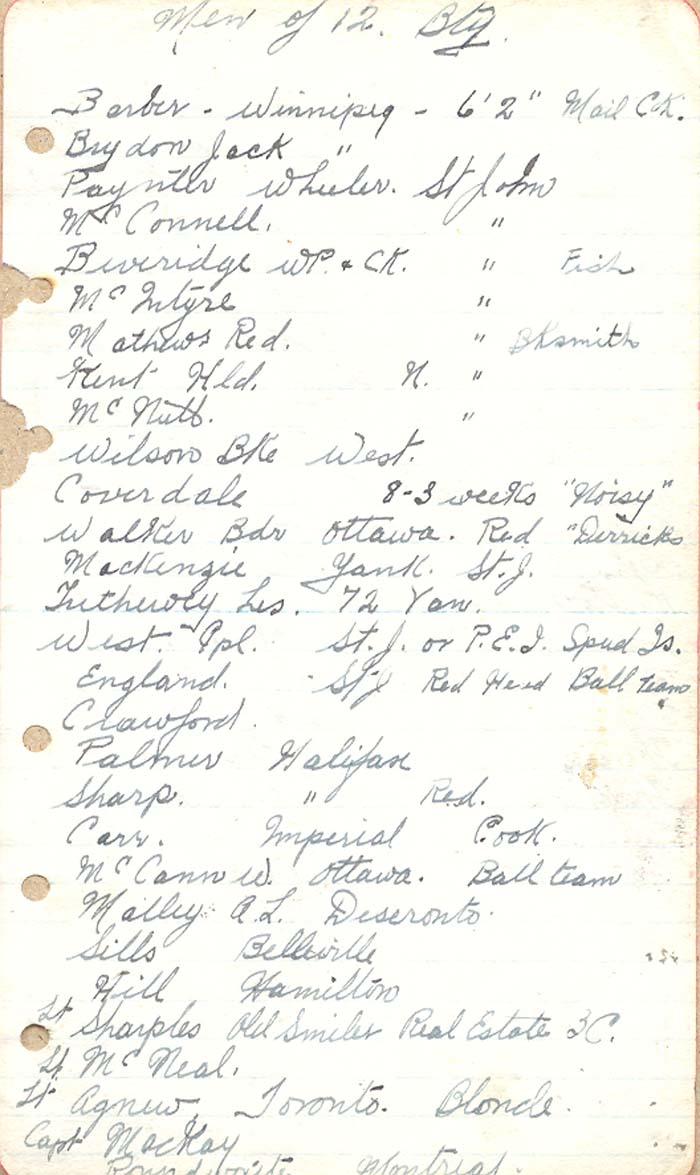 Men of 12. Bty.
Barber - Winnipeg - 6'2" Mail CK.
Brydon Jack "
Paynter Wheeler. St John
McConnell. "
Beveridge WP. & CK. " Fish
McIntyre "
Mathews Red. " Bksmith
Kent Hld. N. "
McNutt. "
Wilson Bke West.
Coverdale 8-3 weeks "Noisy"
Walker Bdr Ottawa. Red "Derricks
Mackenzie Yank. St. J.
Tetheway Les. 72 Van.
West. Cpl. St. J. or P.E.I. Spud Is.
England. St J Red Head Ball team
Crawford.
Palmer Halifax
Sharp. " Red.
Carr. Imperial Cook.
McCann W. Ottawa. Ball team
Malley A.L. Deseronto.
Sills Belleville
Hill Hamilton
Lt Sharples Old Smiler Real Estate BC.
Lt. McNeal.
Lt Agnew Toronto. Blonde.
Capt MacKay
Montreal.